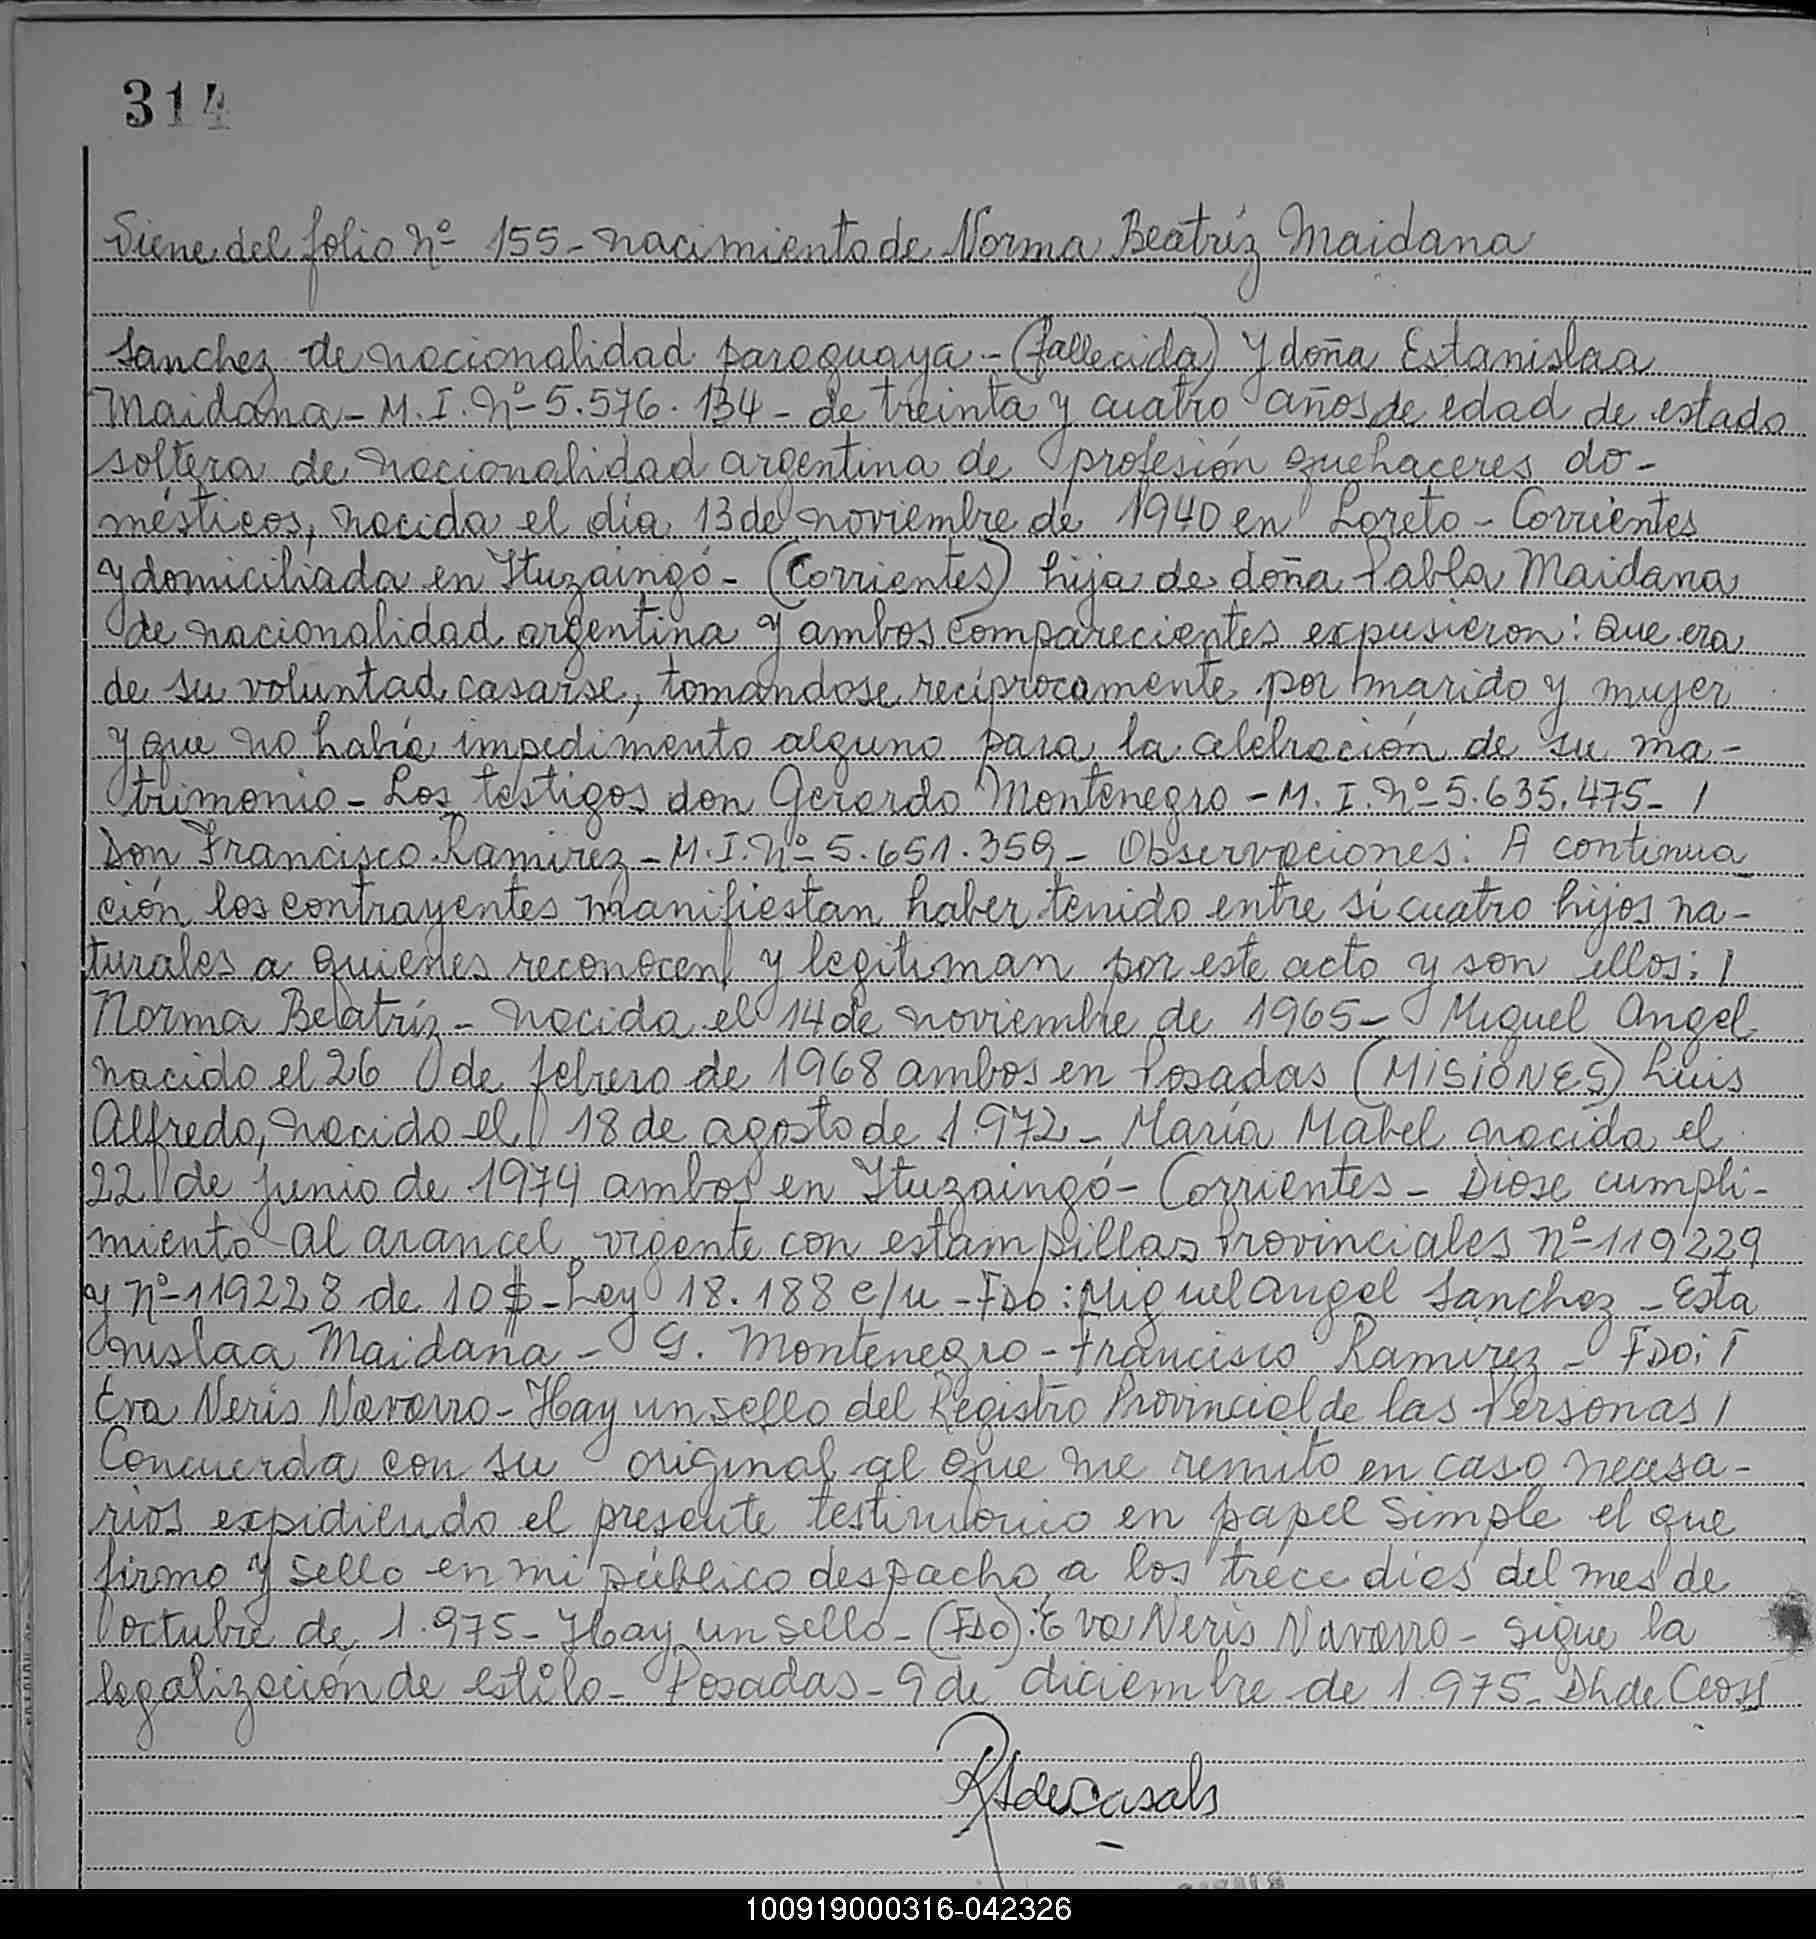 314
Viene del folio Nº 155 - nacimiento de Norma Beatríz Maidana
Sanchez de nacionalidad paraguaya - (fallecida) y doña Estanislaa
Maidana - M. I. Nº 5.576.134 - de treinta y cuatro años de edad de estado
soltera de nacionalidad argentina de profesión quehaceres do-
mésticos, nacida el día 13 de noviembre de 1940 en Loreto - Corrientes
y domiciliada en Ituzaingó - (Corrientes) hija de doña Pabla Maidana
de nacionalidad argentina y ambos comparecientes expusieron: Que era
de su voluntad casarse, tomandose recíprocamente por marido y mujer
y que no había impedimento alguno para la celebración de su ma-
trimonio - Los testigos don Gerardo Montenegro - M. I. Nº 5.635.475 - /
Don Francisco Ramirez - M. I. Nº 5.651.359 - Observaciones: A continua
ción los contrayentes manifiestan haber tenido entre sí cuatro hijos na-
turales a quienes reconocen y legitiman por este acto y son ellos: /
Norma Beatríz - nacida el 14 de noviembre de 1965 - Miguel Angel
nacido el 26 de febrero de 1968 ambos en Posadas (MISIONES) Luis
Alfredo, nacido el 18 de agosto de 1.972 - María Mabel nacida el
22 de junio de 1974 ambos en Ituzaingó - Corrientes - Diose cumpli-
miento al arancel vigente con estampillas Provinciales Nº 119229
y Nº 119228 de 10 $ - Ley 18.188 c/u - Fdo: Miguel Angel Sanchez - Esta
nislaa Maidana - G. Montenegro - Francisco Ramirez - FDO: /
Eva Neris Navarro - Hay un sello del Registro Provincial de las Personas /
Concuerda con su original al que me remito en caso necesa-
rios expidiendo el presente testimonio en papel simple el que
firmo y sello en mi público despacho a los trece días del mes de
octubre de 1.975 - Hay un sello - (FDO): Eva Neris Navarro - sigue la
legalización de estilo - Posadas - 9 de diciembre de 1.975 -
100919000316-042326